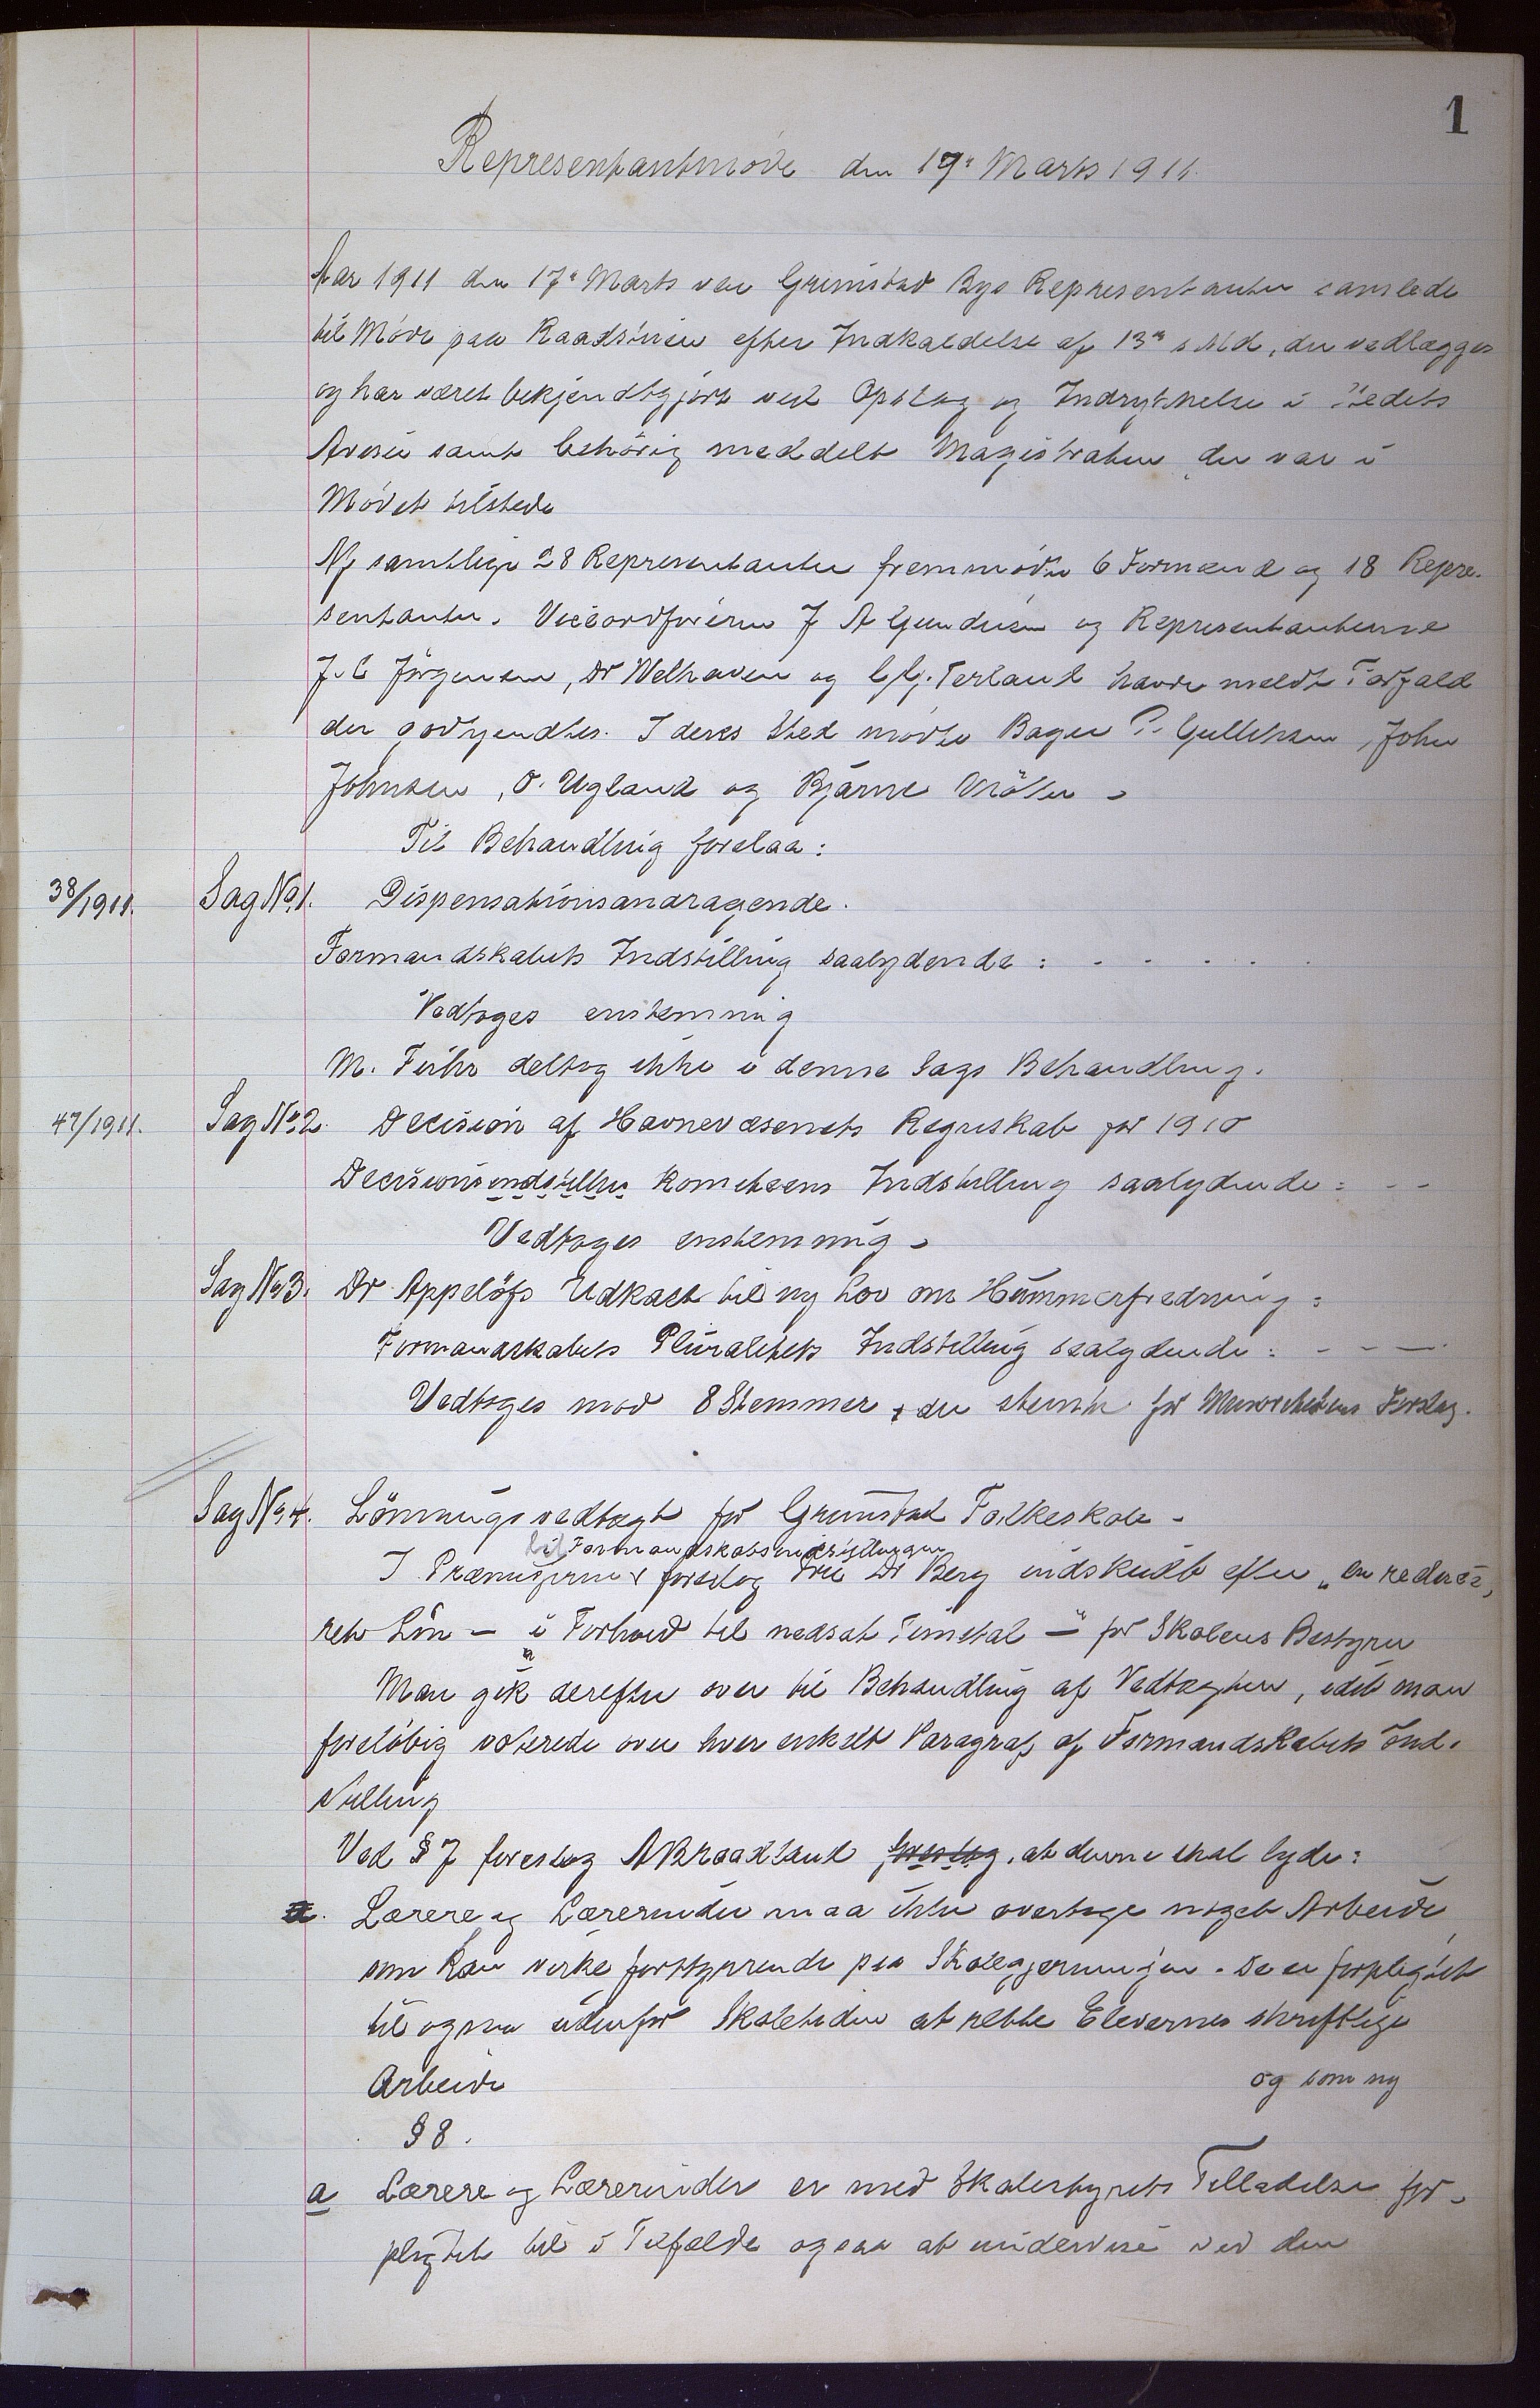 1
Representantmøde den 17de Marts 1911.
Aar 1911 den 17de Marts var Grimstad Bys Representanter samlede
til Møde paa Raadstuen efter Indkaldelse af 13de s. Md, der vedlægges
og har været bekjendtgjort ved Opslag og Indrykkelse i Stedets
Aviser samt behörig meddelt Magistraten, der var i
Mødet tilstede
Af samtlige 28 Representanter fremmødte 6 Formænd og 18 Repre-
sentanter. Viceordføreren J A Gundersen og Representanterne
J. C Jörgensen, Dr Welhaven og Terland havde meldt Forfald
der godkjendtes. I deres Sted mødte Bager P. Gulliksen, John
Johnsen, O. Ugland og Bjarne Möller -
Til Behandling forelaa:
38/1911. Sag No 1. Dispensationsandragende.
Formandskabets Indstilling saalydende: - - - - -
Vedtoges enstemmig
M. Fuhr deltog ikke i denne Sags Behandling.
47/1911. Sag No 2. Decision af Havnevæsenets Regnskab for 1910
Decisionsindstillin Komiteens Indstilling saalydende: - -
Vedtoges enstemmig -
Sag No 3. Dr Appelöfs Udkast til ny Lov om Hummerfredning:
Formandskabets Pluralitets Indstilling saalydende: - - -
Vedtoges mod 8 Stemmer, der stemte for Minoritetens Forslag.
Sag No 4. Lönningsvedtægt for Grimstad Folkeskole -
til Formandskabsindstillingen
I Præmisserne foreslog Fru Dr Berg indskudt efter „en reduce-
ret Lön - „i Forhold til nedsat Timetal -" for Skolens Bestyrer
Man gik derefter over til Behandling af Vedtægten, idet man
forelöbig voterede over hver enkelt Paragraf af Formandskabets Ind-
stilling
Ved § 7 foreslog A Kraadland foreslog, at denne skal lyde:
a. Lærere og Lærerinder maa ikke overtage noget Arbeide,
som kan virke forstyrrende paa Skolegjerningen. De er forpligtet
til ogsaa udenfor Skoletiden at rette Elevernes skriftlige
Arbeide og som ny
§ 8.
a Lærere og Lærerinder er med Skolestyrets Tilladelse for-
pligtet til i Tilfælde ogsaa at undervise ved den